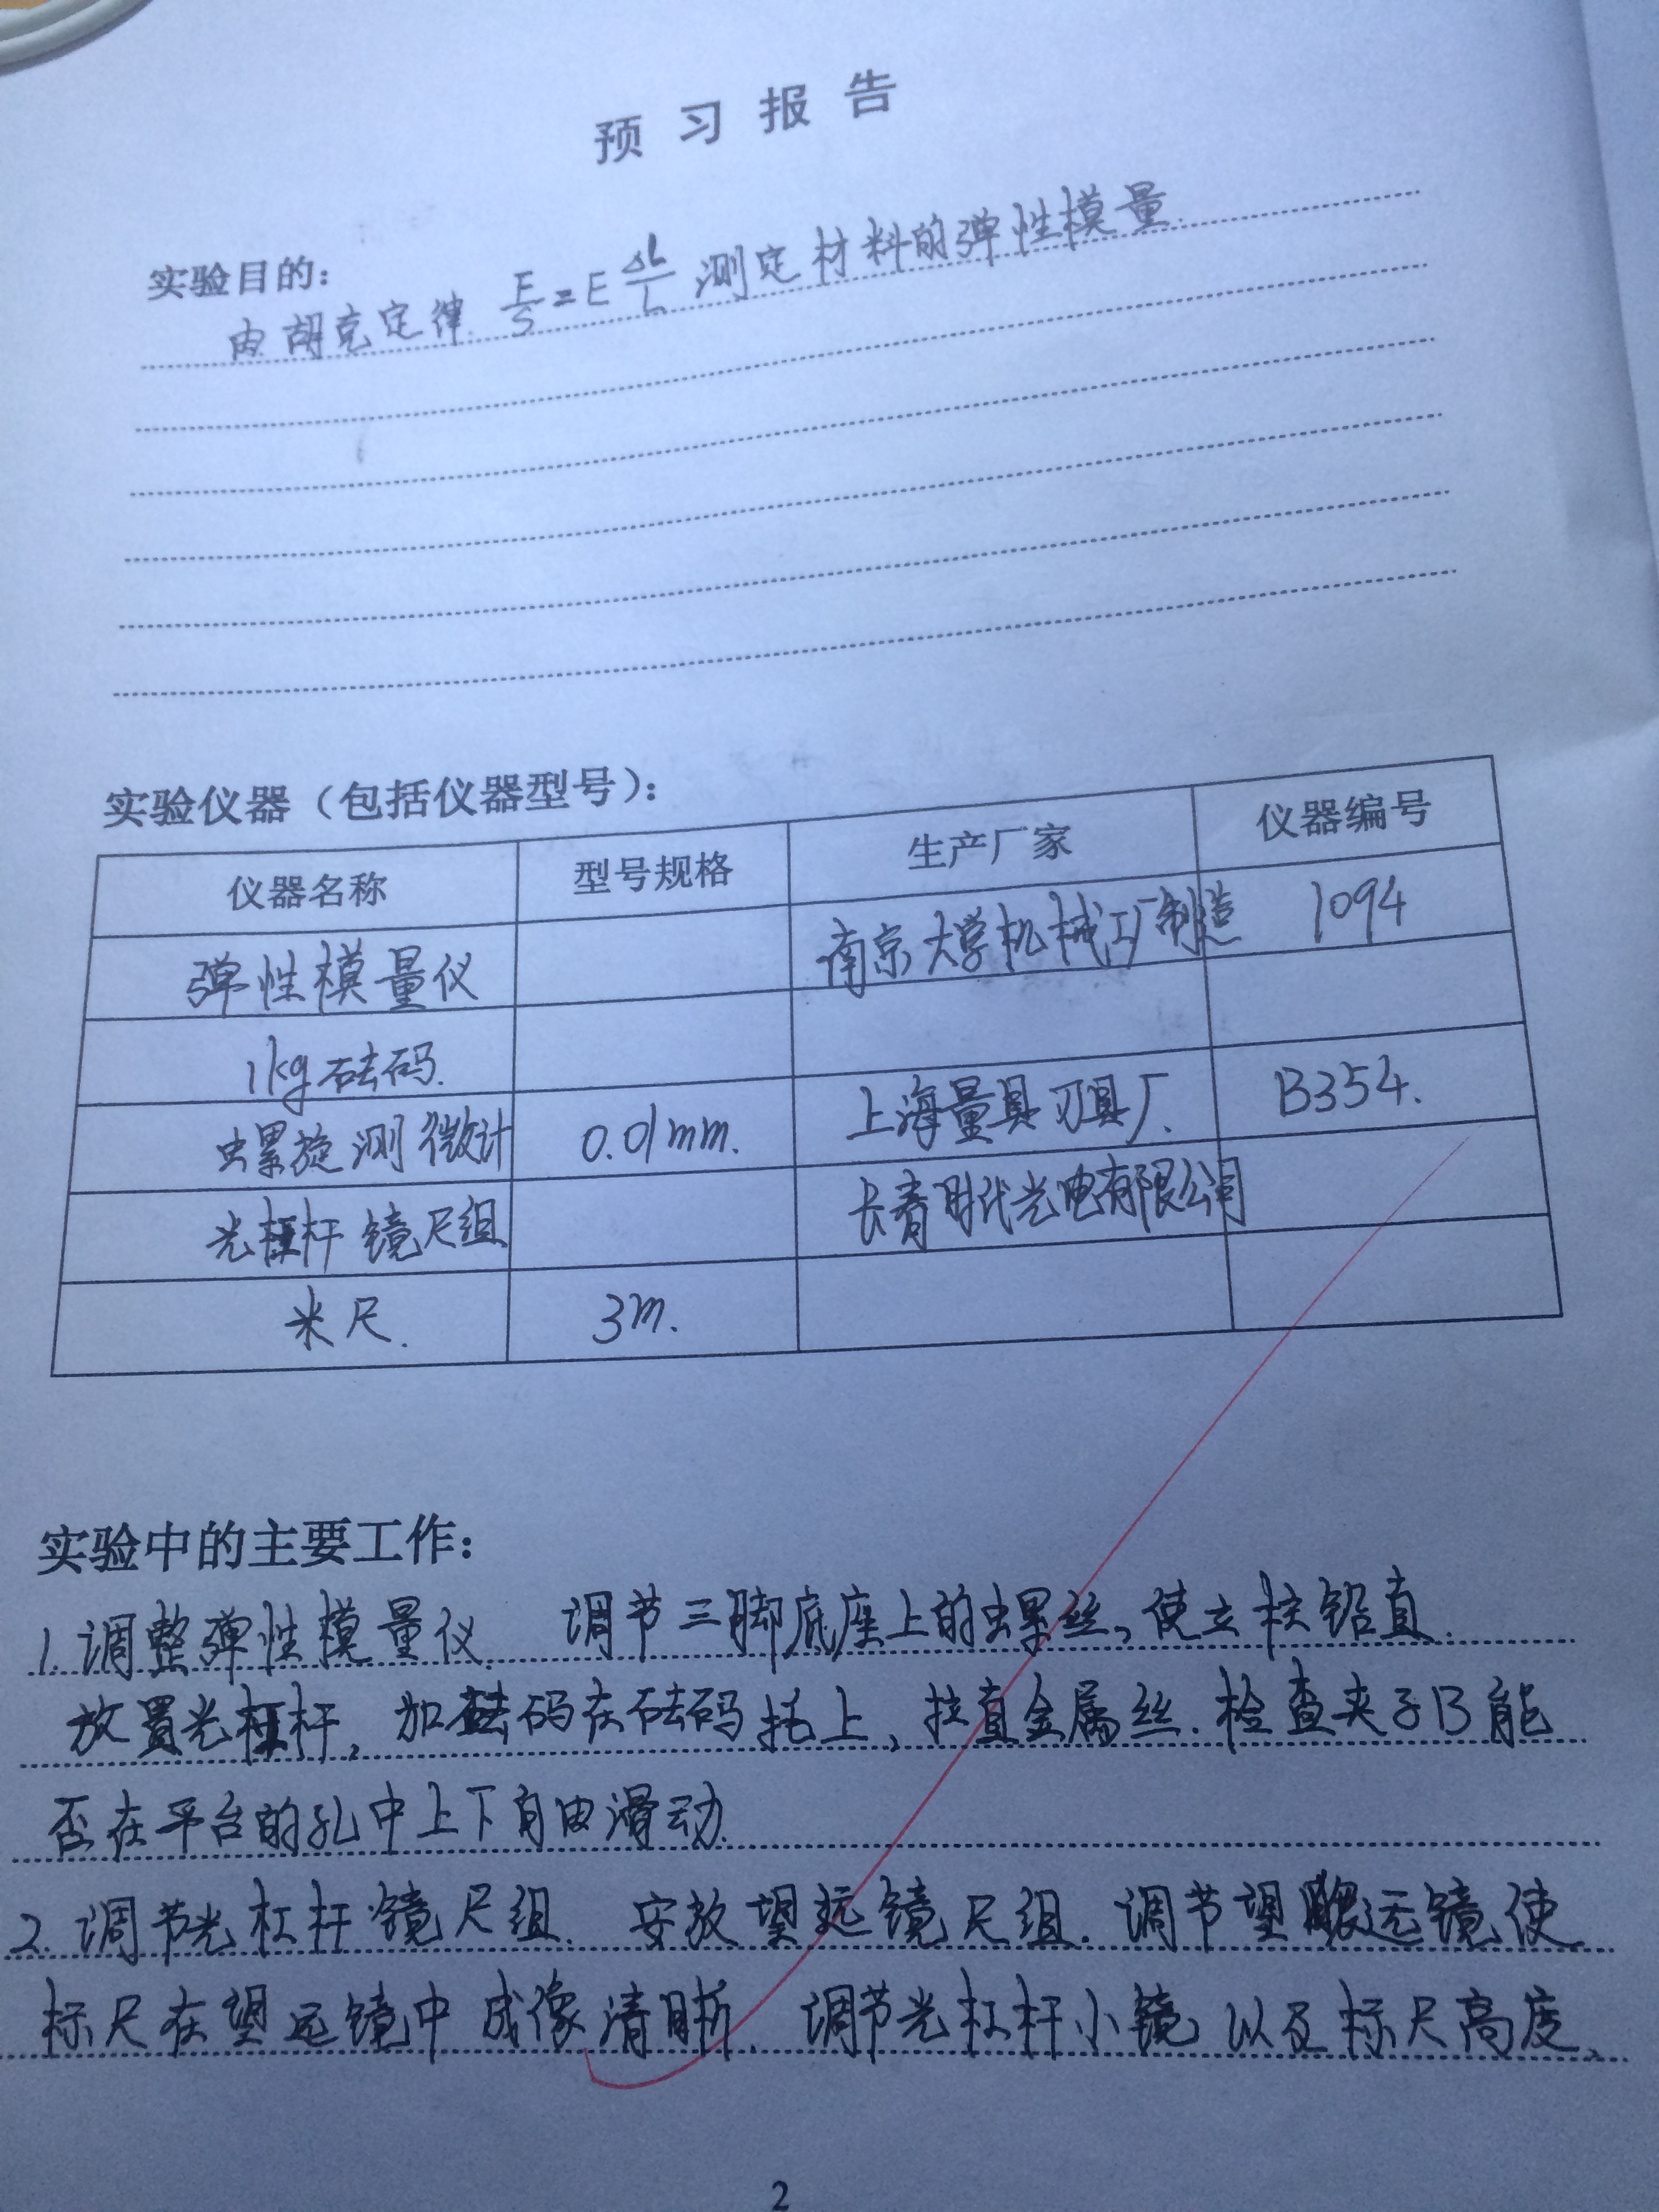 预习报告
实验目的：
由胡克定律 F/S = E ΔL/L 测定材料的弹性模量.
实验仪器（包括仪器型号）：
仪器名称 型号规格 生产厂家 仪器编号
弹性模量仪 南京大学机械工厂制造 1094
1kg砝码.
螺旋测微计 0.01mm. 上海量具刃具厂. B354.
光杠杆镜尺组 长春时代光电有限公司
米尺. 3m.
实验中的主要工作：
1.调整弹性模量仪. 调节三脚底座上的螺丝,使立柱铅直.
放置光杠杆,加砝码在砝码托上,拉直金属丝.检查夹子B能
否在平台的孔中上下自由滑动.
2.调节光杠杆镜尺组. 安放望远镜尺组.调节望远镜使
标尺在望远镜中成像清晰.调节光杠杆小镜以及标尺高度、
2